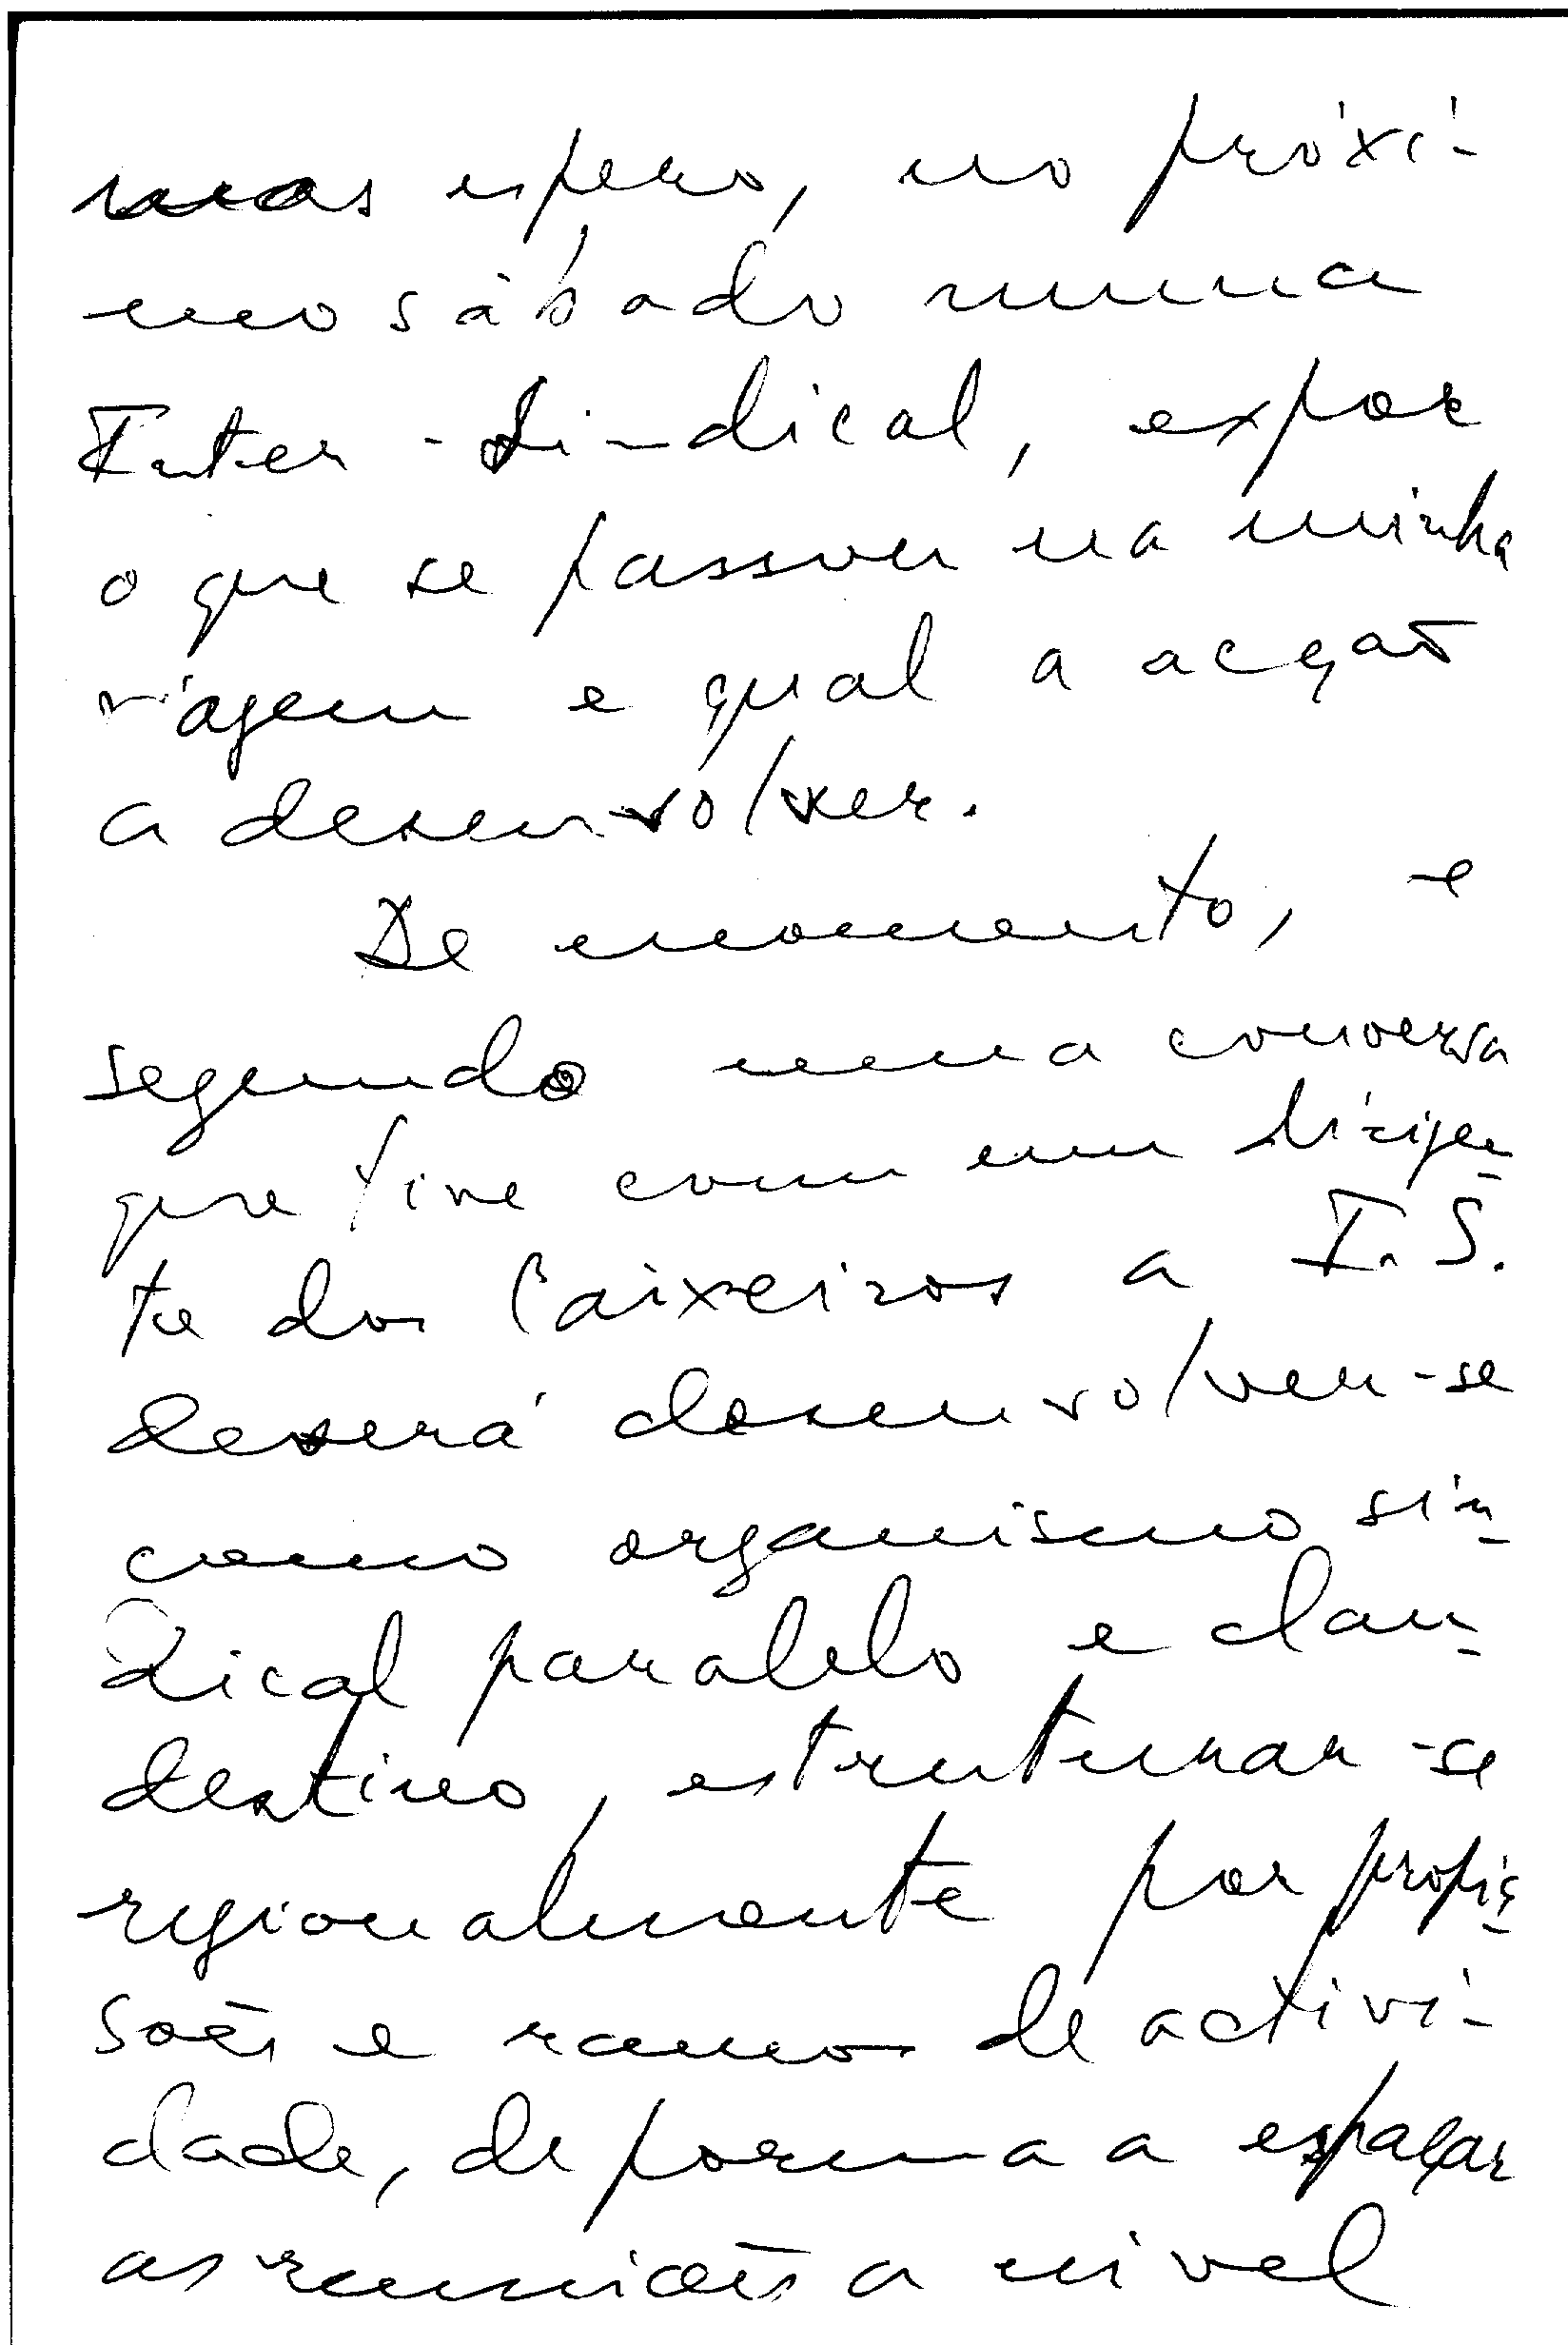 mas espero, no próxi-
mo sábado numa
Inter-Sindical, expor
o que se passou na minha
viagem e qual a acção
a desenvolver.
De momento, e
segundo uma conversa
que tive com um dirigen-
te dos Caixeiros a I.S.
deverá desenvolver-se
como organismo sin-
dical paralelo e clan-
destino, estruturar-se
regionalmente por profis-
soēs e ramos de activi-
dade, de forma a espaçar
as reunioēs a nivel